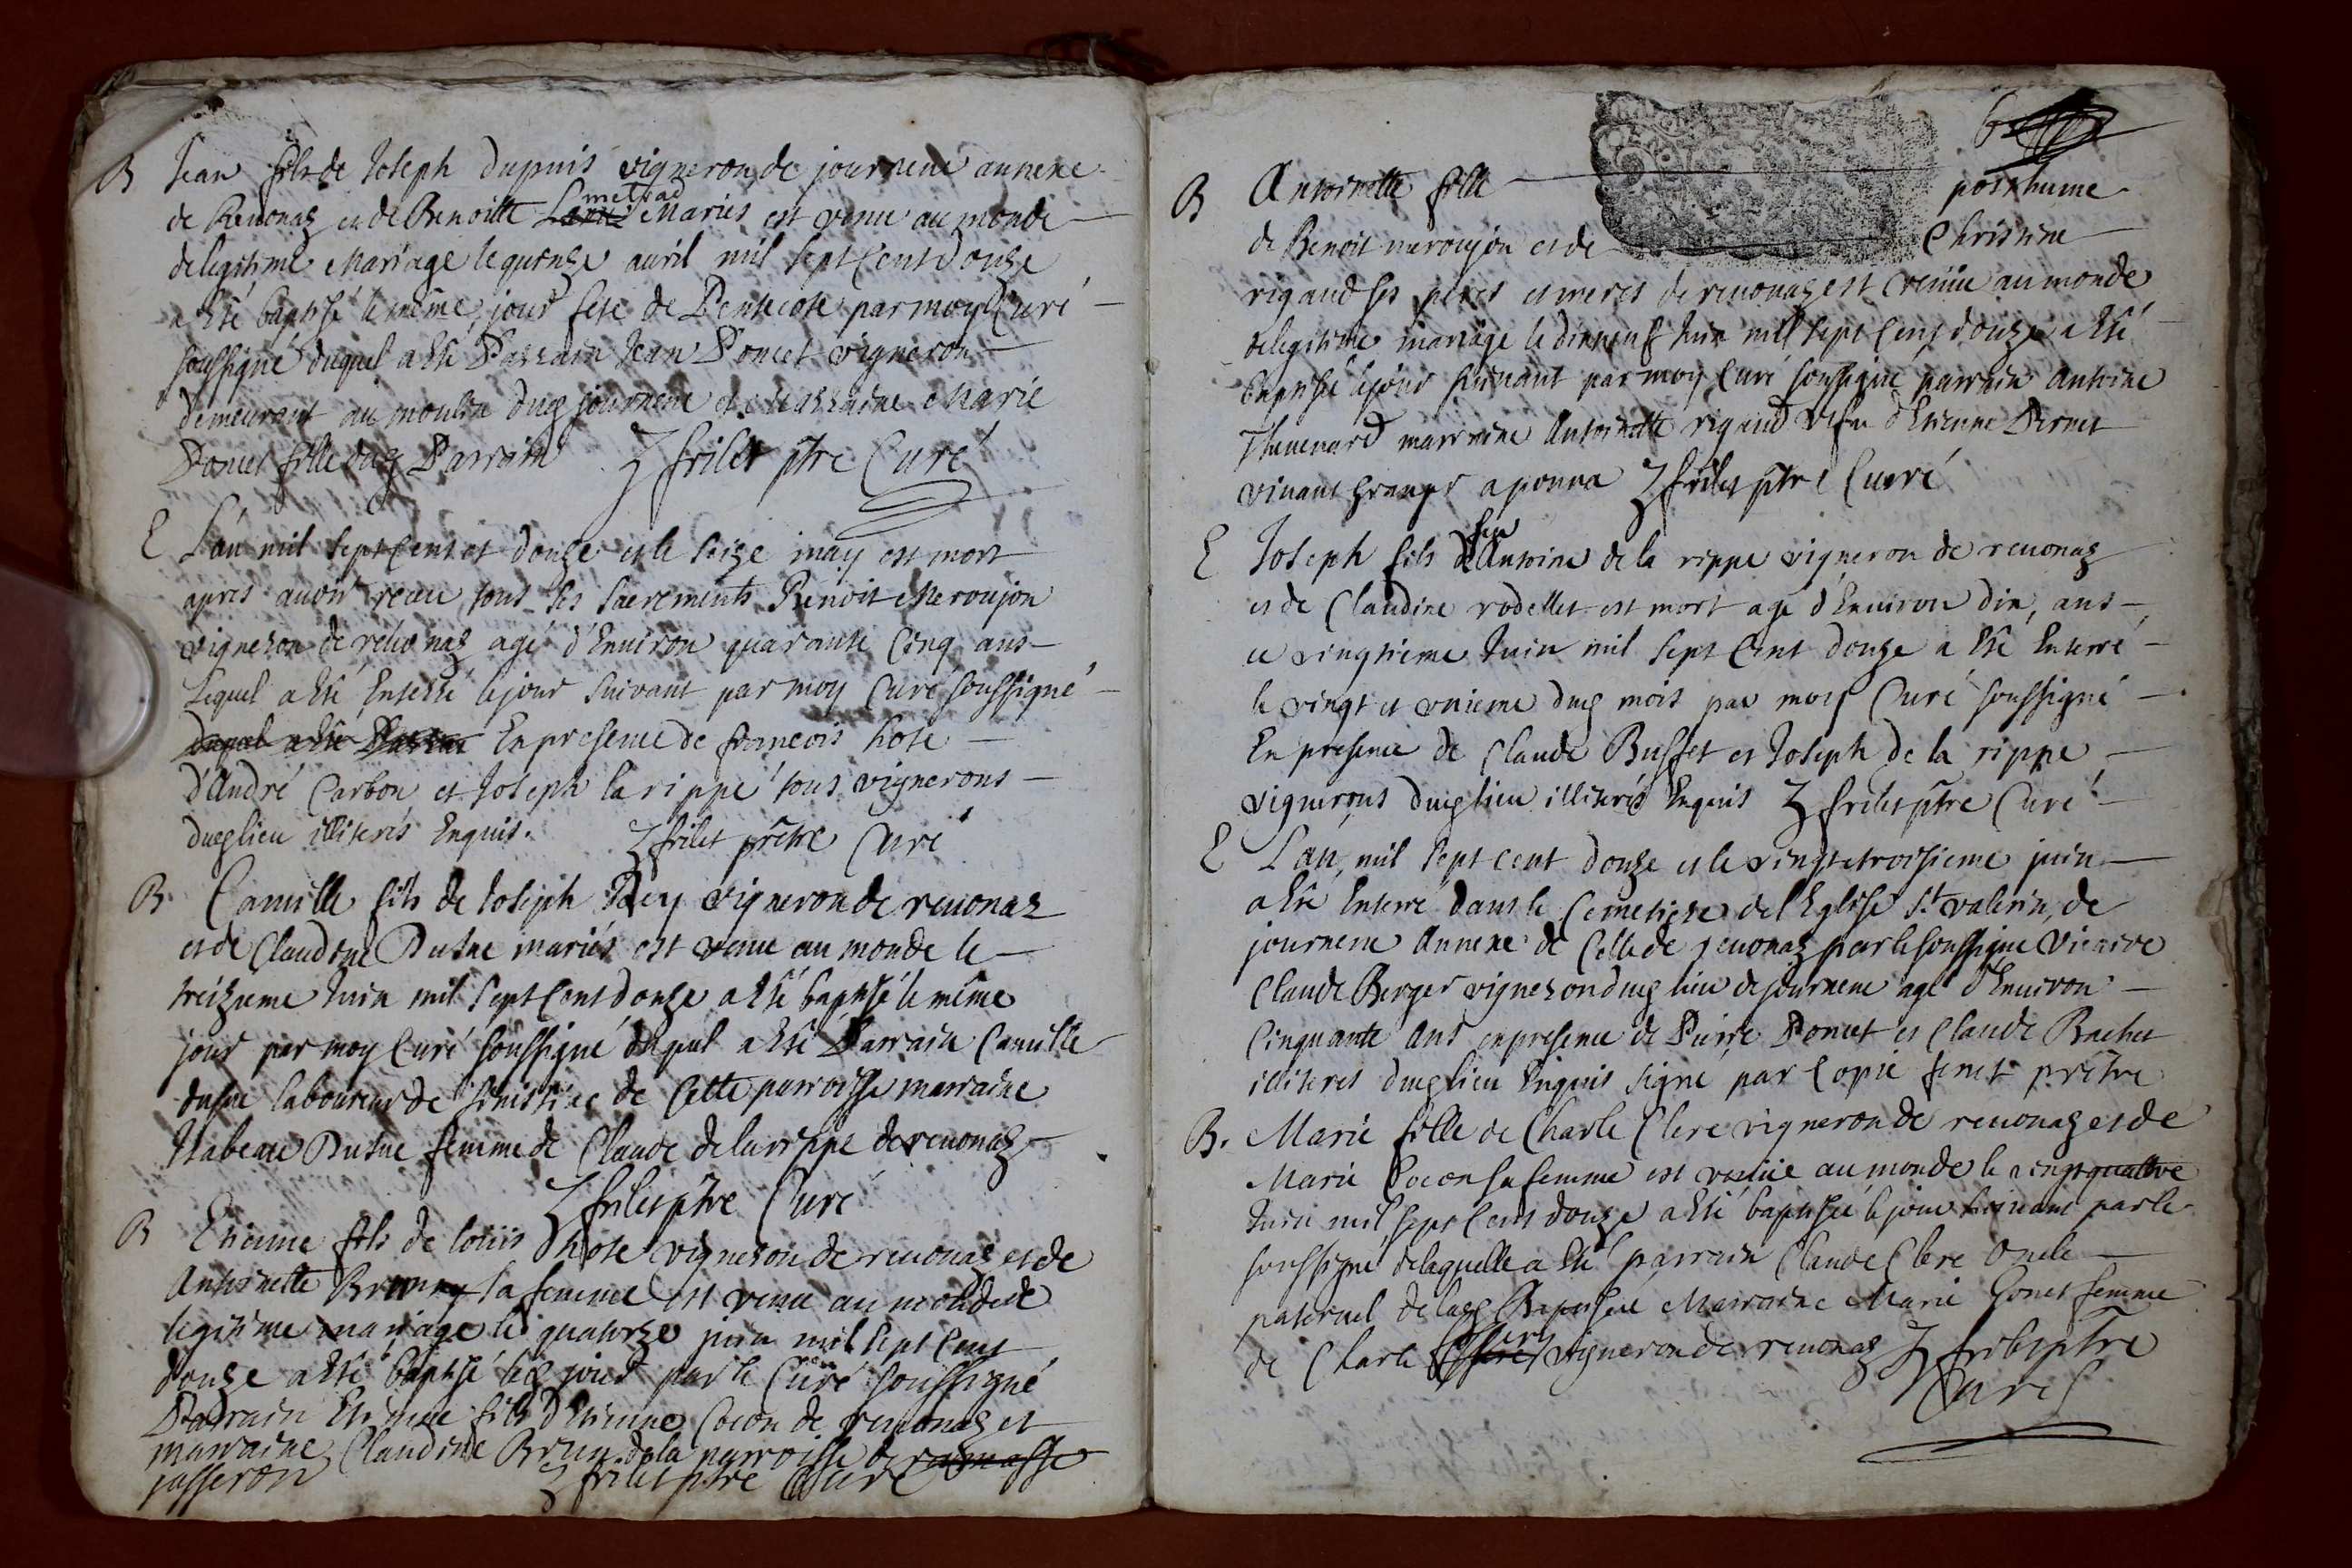 B Jean fils de Joseph dupuis vigneron de journenc annexe
de Reuonas et de Benoitte metrad Mariés est venu au monde
de legitime Mariage le quinze auril mil sept Cent douze
a esté baptisé le même jour fete de Pentecote par moy Curé
soussigné duquel a esté Parrain Jean Poncet vigneron
demeurant au moulin dug journenc et Marraine Marie
Poncet fille dug Parrain J frilet ptre Curé
E L'an mil sept cent et douze et le seize may est mort
apres auoir receu tous ses sacrements Benoit Meroujon
vigneron de reuonas agé d'Enuiron quarante Cinq ans
Lequel a esté Enterré le jour suivant par moy Curé soussigné
duquel a esté Parrain En presence de francois hote
d'André Carbon et Joseph la rippe tous vignerons
dug lieu illiterés Enquis. J frilet prêtre Curé
B. Camille fils de Joseph Pery vigneron de reuonas
et de Claudine Dufue mariés est venu au monde le
treizieme Juin mil sept Cent douze a esté baptisé le même
jour par moy Curé soussigné duquel a esté Parrain Camille
dufue laboureur de de Cette parroisse marraine
Isabeau Dufue femme de Claude de la rippe de reuonas
J frilet ptre Curé
B Etienne fils de loüis hote vigneron de reuonas et de
Antoinette sa femme est venu au monde de
legitime mariage le quatorze juin mil sept Cent
douze a esté baptisé led jour par le Curé soussigné
Parrain Etienne fils d'Etienne Cocon de reuonas et
marraine Claudine Brun de la parroisse de ramasse
jasseron J frilet ptre Curé
6
B Antoinette fille posthume
de Benoit meroujon et de Christine
rigaud ses peres et meres de reuonas est venüe au monde
de legitime mariage le dixneuf Juin mil sept Cent douze a esté
baptisée le jour suiuant par moy Curé soussigné parrain Antoine
Theuenard marraine Antoinette rigaud d'Etienne Pernet
viuant granger a ponna J frilet ptre Curé
E Joseph fils de feu Antoine de la rippe vigneron de reuonas
et de Claudine rodellet est mort agé d'Enuiron dix ans
le vingtieme Juin mil sept Cent douze a esté Enterré
le vingt et unieme dug mois par moy Curé soussigné
En presence de Claude Buffet et Joseph de la rippe
vignerons dug lieu illiterés Enquis J frilet ptre Curé
E L'an mil sept cent douze et le vingt et troisieme juin
a esté Enterré dans le Cemetiere de l'Eglise St valerin de
journenc Annexe de Celle de reuonas par le soussigné Vicaire
Claude Berger vigneron dug lieu de journenc agé d'Enuiron
Cinquante ans en presence de Pierre Poncet et Claude Bachet
illiteres dug lieu Enquis signe par Copie fenet prêtre
B. Marie fille de Charle Clere vigneron de reuonas et de
Marie Cocon sa femme est venüe au monde le vingt quattre
Juin mil sept Cent douze a esté baptisée le jour suiuant par le
soussigné de laquelle a esté parrain Claude Clere oncle
paternel de lad Baptisée Marraine Marie Gonet femme
de Charle vigneron de reuonas J frilet ptre
Curé